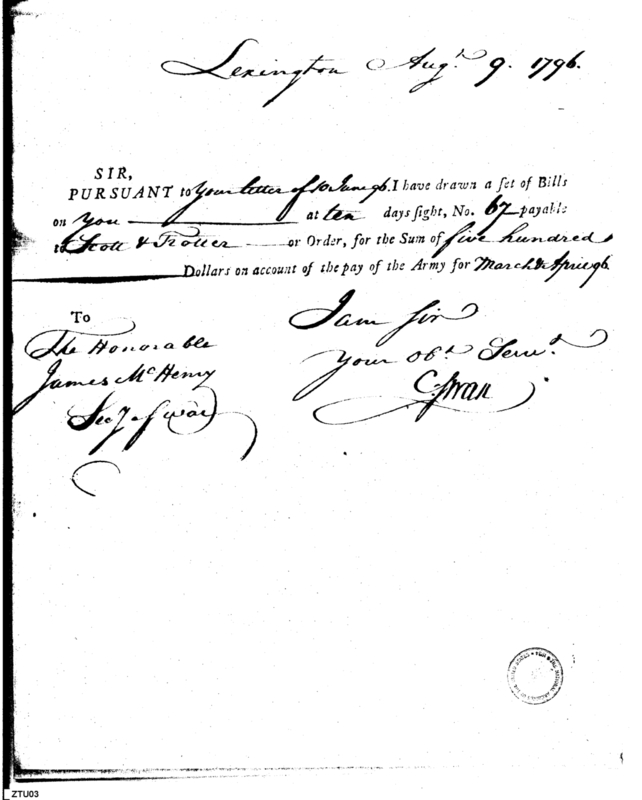 Lexington Augt. 9. 1796.
SIR,
PURSUANT to your letter of 10 June 96. I have drawn a set of Bills
on you at ten days sight, No. 67 payable
to Scott & Trotter or Order, for the Sum of five hundred
Dollars on account of the pay of the Army for March & April 96
To
The Honorable
James McHenry
Secy of War
I am Sir
Your Obt. Servt.
C. Swan
ZTU03